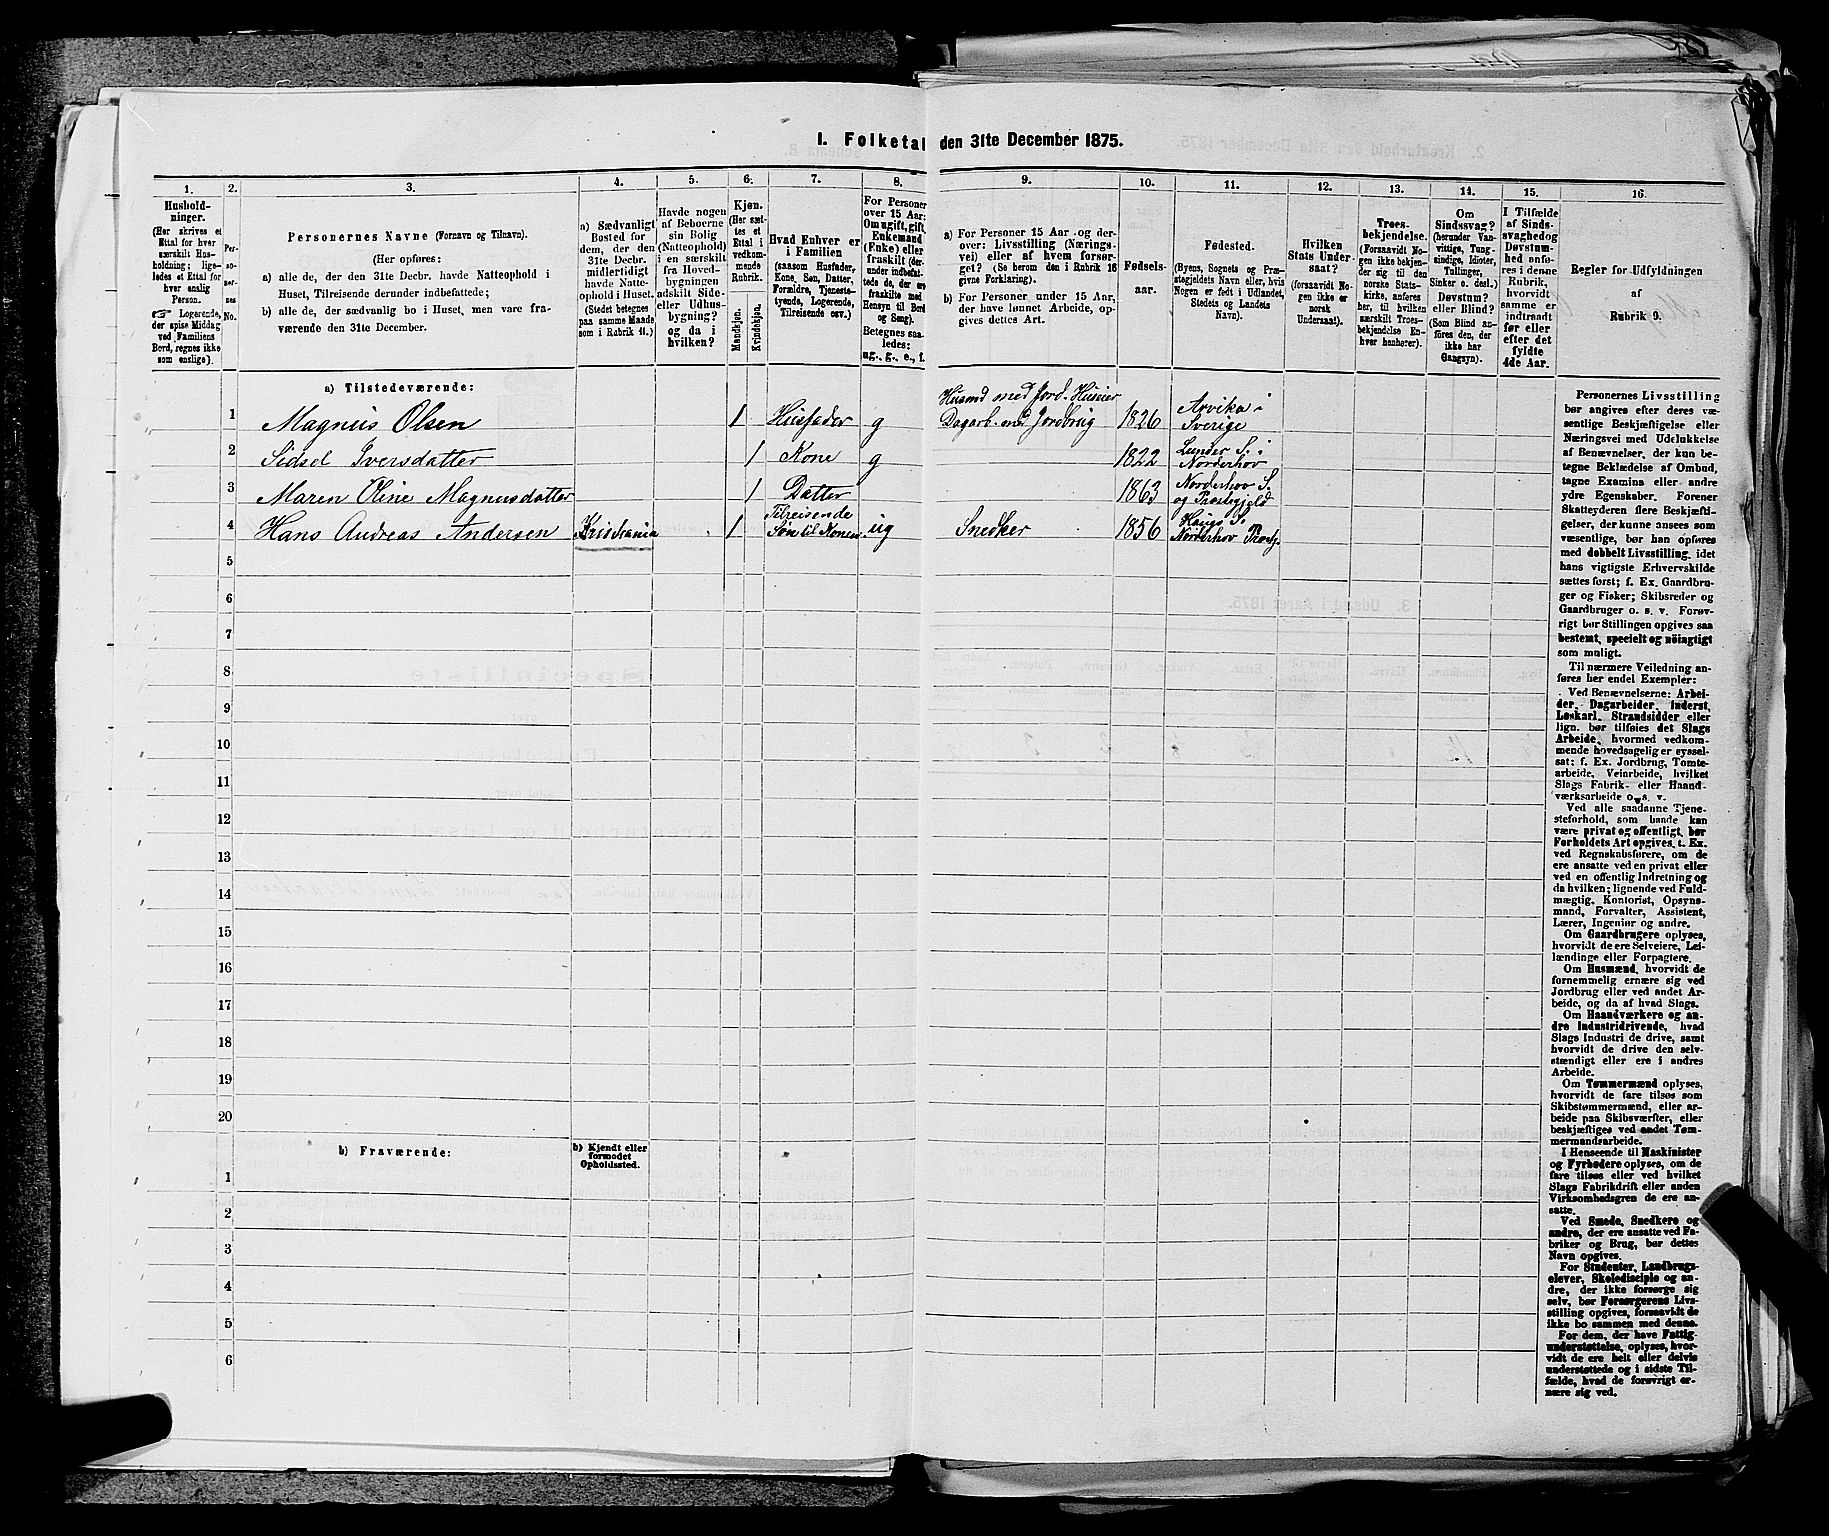 I. Folketal den 31te December 1875.
1. 2. 3. 4. 5. 6. 7. 8. 9. 10. 11. 12. 13. 14. 15. 16.
Hushold-
ninger.
(Her skrives et
Ettal for hver
særskilt Hus-
holdning; lige-
ledes et Ettal for
hver enslig
Person.
☞ Logerende,
der spise Middag
ved Familiens
Bord, regnes ikke
som enslige).
Per-
so-
ner-
nes
No.
Personernes Navne (Fornavn og Tilnavn).
(Her opføres:
a) alle de, der den 31te Decbr. havde Natteophold i
Huset, Tilreisende derunder indbefattede;
b) alle de, der sædvanlig bo i Huset, men vare fra-
værende den 31te December.
a) Sædvanligt
Bosted for
dem, der den
31te Decbr.
midlertidigt
havde Natte-
ophold i Huset.
(Stedet betegnes
paa samme Maade
som i Rubrik 11.)
Havde nogen
af Beboerne
sin Bolig
(Natteophold)
i en særskilt
fra Hoved-
bygningen
adskilt Side-
eller Udhus-
bygning?
og da i
hvilken?
Kjøn.
(Her sæt-
tes et
Ettal i
vedkom-
mende
Rubrik.
Mandkjøn.
Kvindekjøn.
Hvad Enhver er
i Familien
(saasom Husfader,
Kone, Søn, Datter,
Forældre, Tjeneste-
tyende, Logerende,
Tilreisende osv.)
For Personer
over 15 Aar:
Om ugift, gift,
Enkemand
(Enke) eller
fraskilt (der-
under indbefat-
tede de, der ere
fraskilte med
Hensyn til Bord
og Seng).
Betegnes saa-
ledes:
ug., g., e., f.
a) For Personer 15 Aar og der-
over: Livsstilling (Nærings-
vei) eller af hvem forsør-
get? (Se herom den i Rubrik 16
givne Forklaring).
b) For Personer under 15 Aar,
der have lønnet Arbeide, op-
gives dettes Art.
Fødsels-
aar.
Fødested.
(Byens, Sognets og Præ-
stegjeldets Navn eller, hvis
Nogen er født i Udlandet,
Stedets og Landets
Navn).
Hvilken
Stats Under-
saat?
(forsaavidt No-
gen ikke er
norsk
Undersaat).
Troes-
bekjendelse.
(Forsaavidt No-
gen ikke bekjen-
der sig til den
norske Stats-
kirke, anføres
her, til hvilken
særskilt Troes-
bekjendelse En-
hver henhører).
Om
Sindssvag?
(herunder Van-
vittige, Tung-
sindige, Idioter,
Tullinger,
Sinker o. desl.)
Døvstum?
eller Blind?
(Som Blind an-
føres den, der
ikke har
Gangsyn).
I Tilfælde
af Sinds-
svaghed og
Døvstum-
hed anfø-
res i denne
Rubrik,
hvorvidt
samme er
indtraadt
før eller
efter det
fyldte
4de Aar.
Regler for Udfyldningen
af
Rubrik 9.
a) Tilstedeværende:
1 Magnus Olsen 1 Husfader g Husmd med Jord. Husier Dagarb. med Jordbrug 1826 Arvika i Sverige
2 Sidsel Iversdatter 1 Kone g 1822 Lunder S. i Norderhov
3 Maren Oline Magnusdatter 1 Datter 1863 Norderhov S. og Præstegjeld
4 Hans Andreas Andersen Kristiania 1 Tilreisende Søn til Konen ug Snedker 1856 Haugs S. Norderhov Præstg.
5
6
7
8
9
10
11
12
13
14
15
16
17
18
19
20
b) Fraværende:
b) Kjendt eller
formodet
Opholdssted.
1
2
3
4
5
6
Personernes Livsstilling
bør angives efter deres væ-
sentlige Beskjæftigelse eller
Næringsvei med Udelukkelse
af Benævnelser, der kun be-
tegne Beklædelse af Ombud,
tagne Examina eller andre
ydre Egenskaber. Forener
Skatteyderen flere Beskjæfti-
gelser, der kunne ansees som
væsentlige, bør han opføres
med dobbelt Livsstilling, idet
hans vigtigste Erhvervskilde
sættes først; f. Ex. Gaardbru-
ger og Fisker; Skibsreder og
Gaardbruger o. s. v. Forøv-
rigt bør Stillingen opgives saa
bestemt, specielt og nöiagtigt
som muligt.
Til nærmere Veiledning an-
føres her endel Exempler:
Ved Benævnelserne: Arbei-
der, Dagarbeider, Inderst,
Løskarl, Strandsidder eller
lign. bør tilføies det Slags
Arbeide, hvormed vedkom-
mende hovedsagelig er syssel-
sat; f. Ex. Jordbrug, Tomte-
arbeide, Veiarbeide, hvilket
Slags Fabrik- eller Haand-
værksarbeide o. s. v.
Ved alle saadanne Tjene-
steforhold, som baade kan
være privat og offentligt, bør
Forholdets Art opgives, t. Ex.
ved Regnskabsførere, om de
ere ansatte ved en privat eller
ved en offentlig Indretning og
da hvilken; lignende ved Fuld-
mægtig, Kontorist, Opsyns-
mand, Forvalter, Assistent,
Lærer, Ingeniør og andre.
Om Gaardbrugere oplyses,
hvorvidt de ere Selveiere, Lei-
lændinge eller Forpagtere.
Om Husmænd, hvorvidt de
fornemmelig ernære sig ved
Jordbrug eller ved andet Ar-
beide, og da af hvad Slags.
Om Haandværkere og an-
dre Industridrivende, hvad
Slags Industri de drive, samt
hvorvidt de drive den selv-
stændigt eller ere i andres
Arbeide.
Om Tømmermænd oplyses,
hvorvidt de fare tilsøs som
Skibstømmermænd, eller ar-
beide paa Skibsværfter, eller
beskjæftiges ved andet Tøm-
mermandsarbeide.
I Henseende til Maskinister
og Fyrbødere oplyses, om de
fare tilsøs eller ved hvilket
Slags Fabrikdrift eller anden
Virksomhedsgren de ere an-
satte.
Ved Smede, Snedkere og
andre, der ere ansatte ved Fa-
briker og Brug, bør dettes
Navn opgives.
For Studenter, Landbrugs-
elever, Skoledisciple og an-
dre, der ikke forsørge sig
selv, bør Forsørgerens Livs-
stilling opgives, forsaavidt de
ikke bo sammen med denne.
For dem, der have Fattig-
understøttelse, oplyses, hvor-
vidt de ere helt eller delvis
understøttede og i sidste Til-
fælde, hvad de forøvrigt er-
nære sig ved.